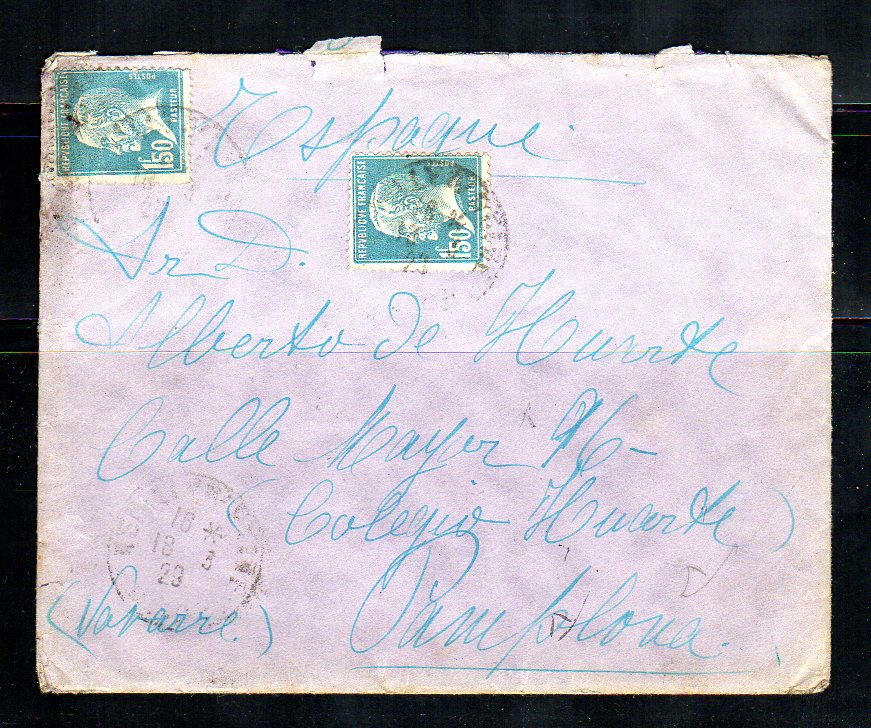 REPVBLIQUE FRANÇAISE
POSTES
PASTEUR
1f50
Espagne.
REPVBLIQUE FRANÇAISE
POSTES
PASTEUR
1f50
Sr D.
Alberto de Huarte
Calle Mayor 76-
(Colegio Huarte)
16 *
18 3
29
(Navarre.)
Pamplona.